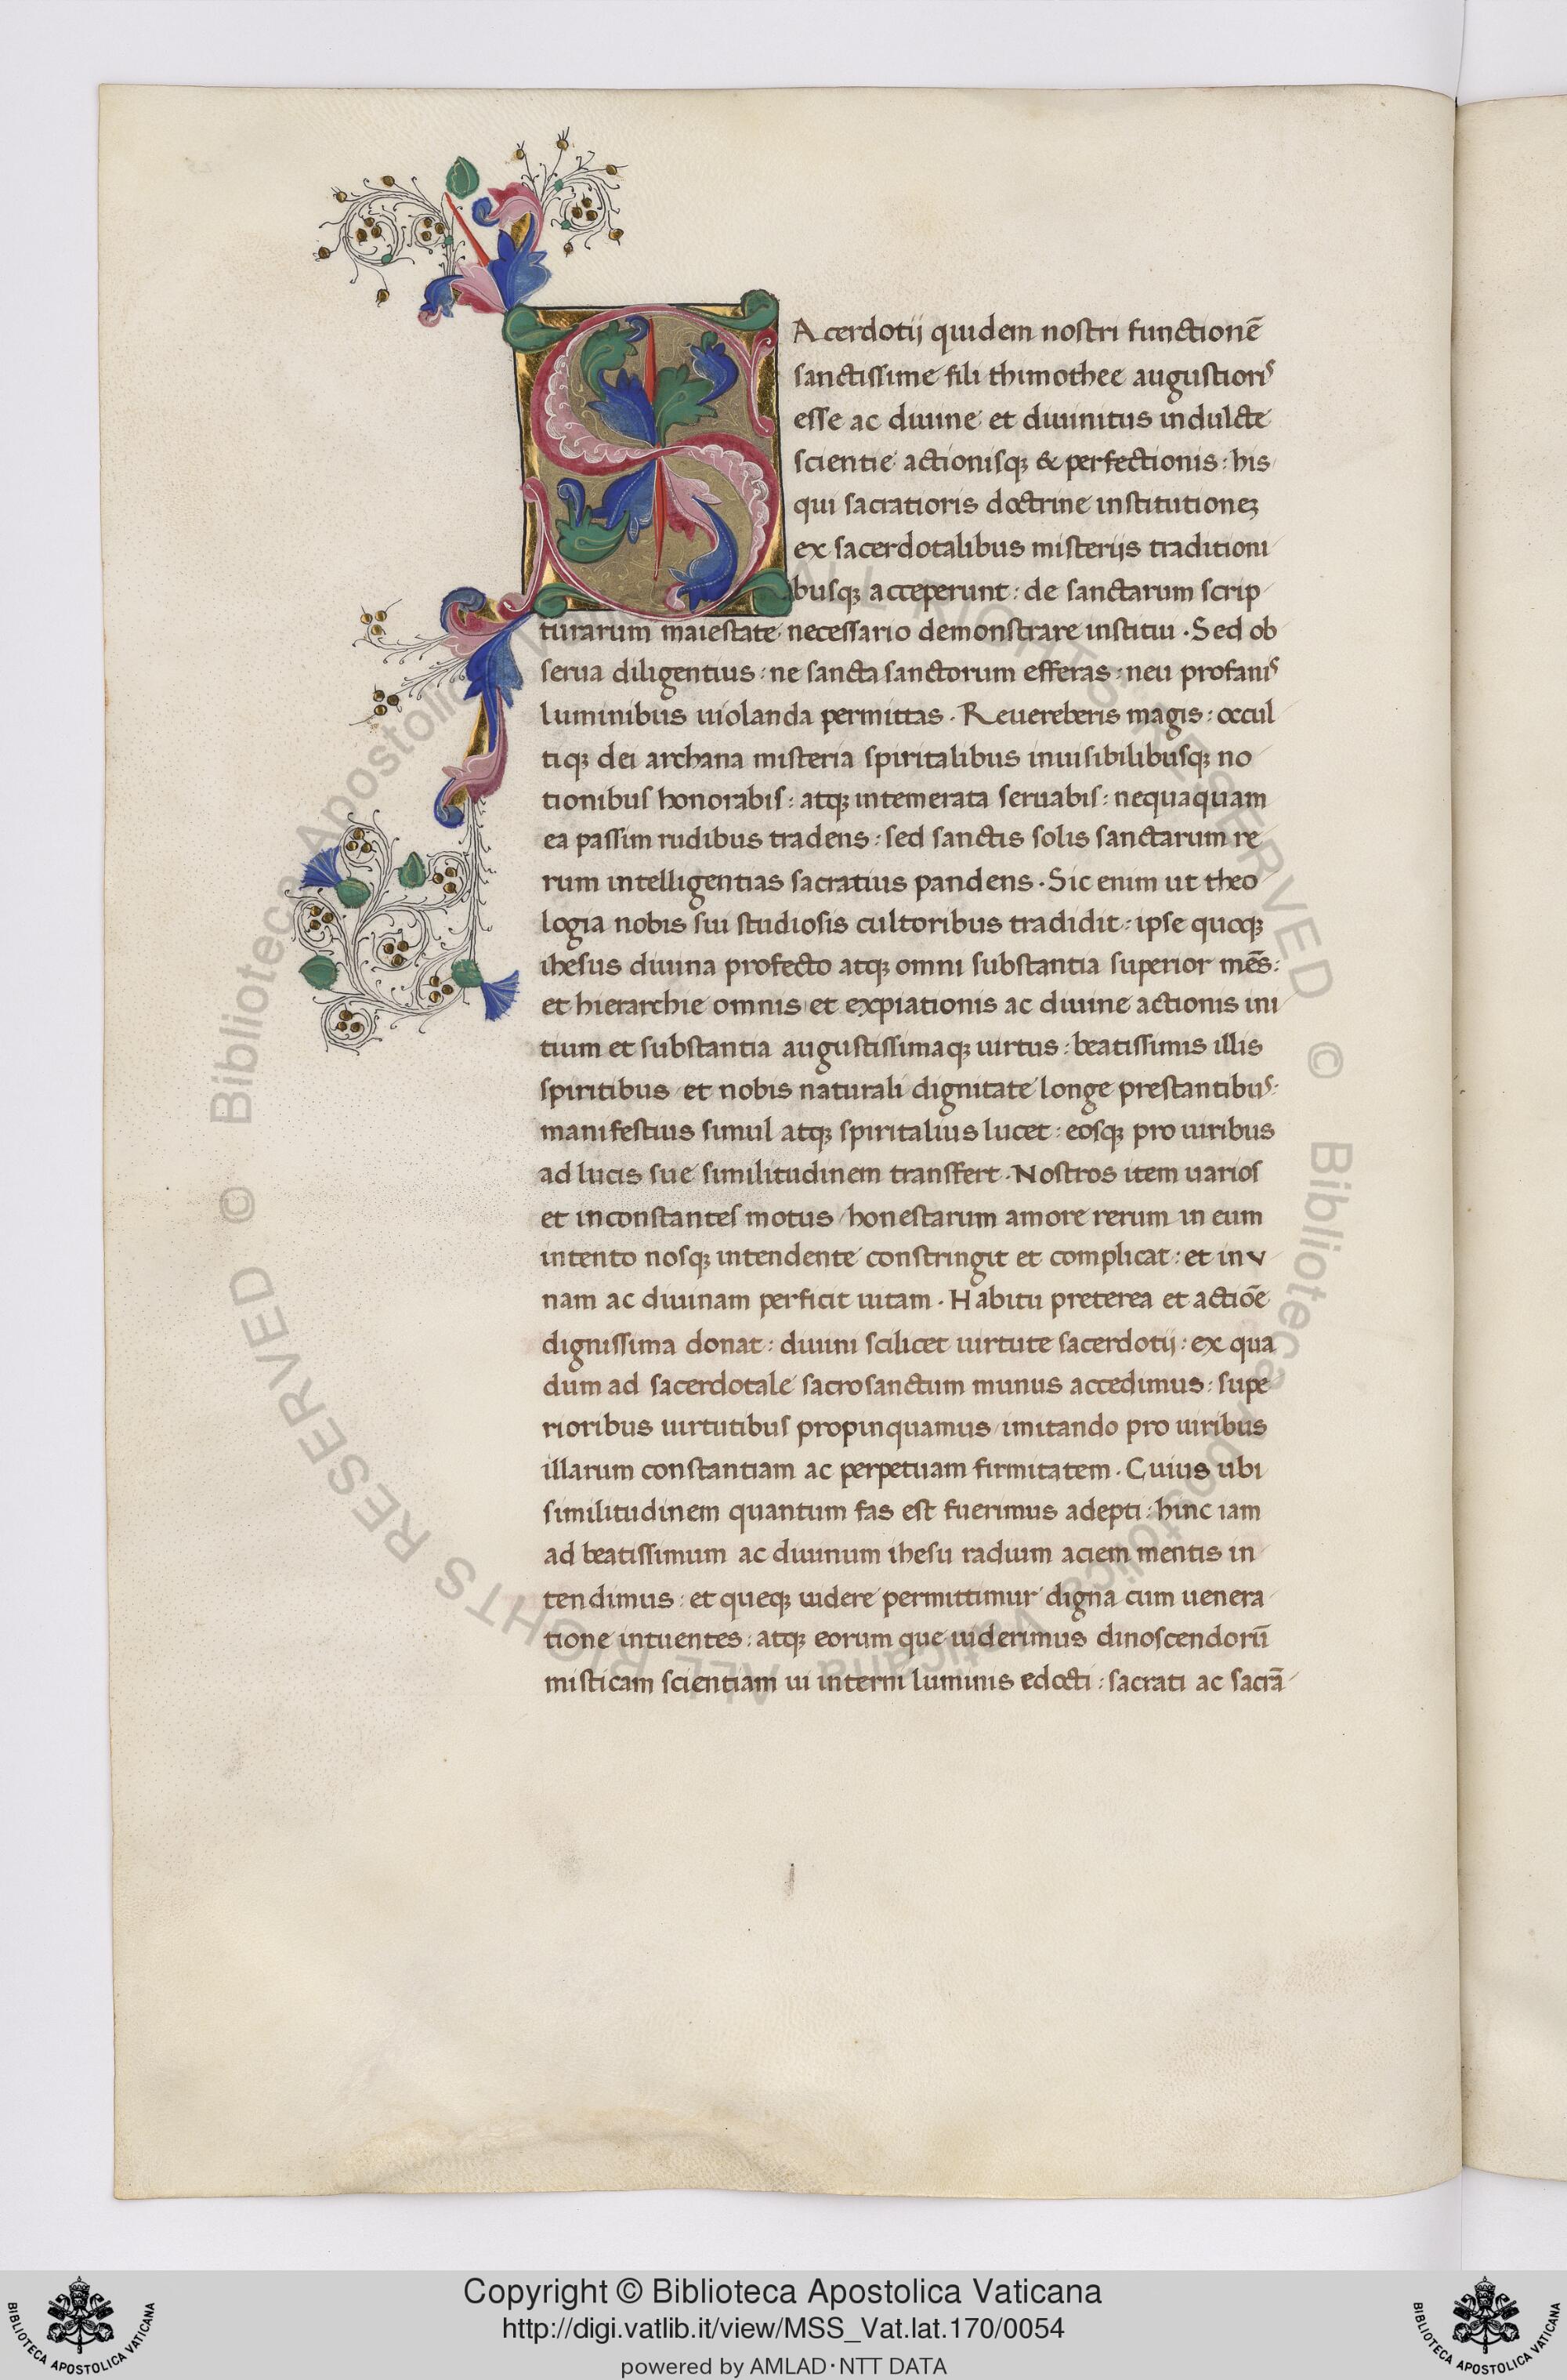 SAcerdotij quidem nostri functionē
sanctissime fili thimothee augustioris
esse ac diuine et diuinitus indulcte
scientie actionisq; & perfectionis: his
qui sacratioris doctrine institutionez
ex sacerdotalibus misterijs traditioni
busq; acceperunt: de sanctarum scrip
turarum maiestate necessario demonstrare institui. Sed ob
serua diligentius: ne sancta sanctorum efferas: neu profanis
luminibus uiolanda permittas. Reuereberis magis: occul
tiq; dei archana misteria spiritalibus inuisibilibusq; no
tionibus honorabis: atq; intemerata seruabis: nequaquam
ea passim rudibus tradens: sed sanctis solis sanctarum re
rum intelligentias sacratius pandens. Sic enim ut theo
logia nobis sui studiosis cultoribus tradidit: ipse quoq;
ihesus diuina profecto atq; omni substantia superior mēs:
et hierarchie omnis et expiationis ac diuine actionis ini
tium et substantia augustissimaq; uirtus: beatissimis illis
spiritibus et nobis naturali dignitate longe prestantibus:
manifestius simul atq; spiritalius lucet: eosq; pro uiribus
ad lucis sue similitudinem transfert. Nostros item uarios
et inconstantes motus / honestarum amore rerum in eum
intento nosq; intendente constringit et complicat: et in v
nam ac diuinam perficit uitam. Habitu preterea et actiōe
dignissima donat: diuini scilicet uirtute sacerdotij: ex qua
dum ad sacerdotale sacrosanctum munus accedimus: supe
rioribus uirtutibus propinquamus / imitando pro uiribus
illarum constantiam ac perpetuam firmitatem. Cuius ubi
similitudinem quantum fas est fuerimus adepti: hinc iam
ad beatissimum ac diuinum ihesu radium aciem mentis in
tendimus: et queq; uidere permittimur digna cum uenera
tione intuentes: atq; eorum que uiderimus dinoscendorū
misticam scientiam ui interni luminis edocti: sacrati ac sacrā
© Biblioteca Apostolica Vaticana ALL RIGHTS RESERVED © Biblioteca Apostolica Vaticana ALL RIGHTS RESERVED
Copyright © Biblioteca Apostolica Vaticana
http://digi.vatlib.it/view/MSS_Vat.lat.170/0054
powered by AMLAD·NTT DATA
BIBLIOTECA APOSTOLICA VATICANA
BIBLIOTECA APOSTOLICA VATICANA